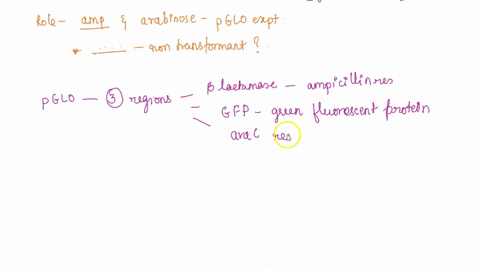 Role - amp & arabinose - pGLO expt.
* ..... - non transformant ?
pGLO - 3 regions - β lactamase - ampicillin res
- GFP - green fluorescent protein
araC res